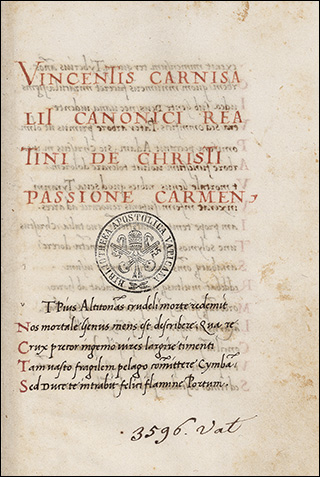 VINCENTIS CARNISA
LII CANONICI REA
TINI DE CHRISTI
PASSIONE CARMEN,
BIBLIOTHECA APOSTOLICA VATICANA
T Pius Altitonãs crudeli morte redemit
Nos mortale genus mens est discribere. Qua re
Crux precor ingenio vires largire timenti
Tam vasto fragilem pelago cõmittere Cymbã
Sed Duce te intrabit felici flamine Portum.
3596. Vat